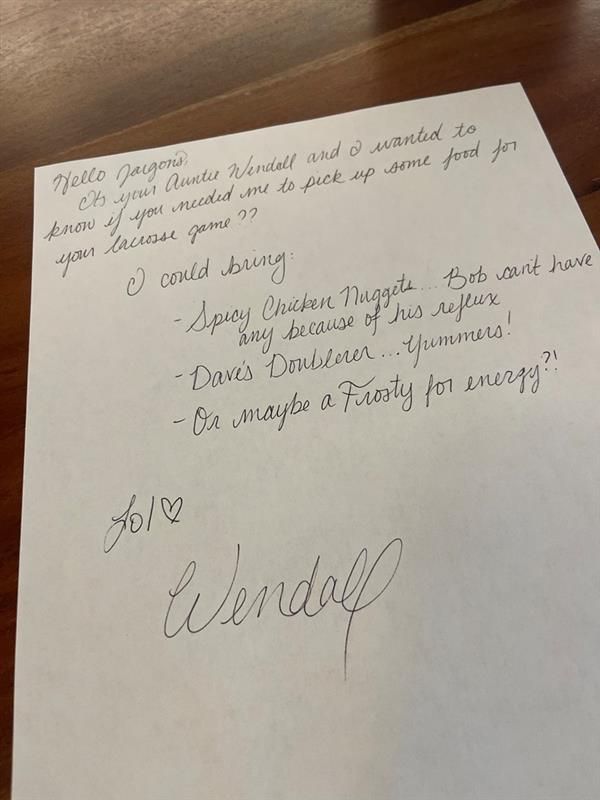 Hello Jargons,
Its your Auntie Wendall and I wanted to
know if you needed me to pick up some food for
your lacrosse game??
I could bring:
- Spicy Chicken Nuggets... Bob can't have
any because of his reflux
- Dave's Doublerer... Yummers!
- Or maybe a Frosty for energy?!
Lol♡
Wendall